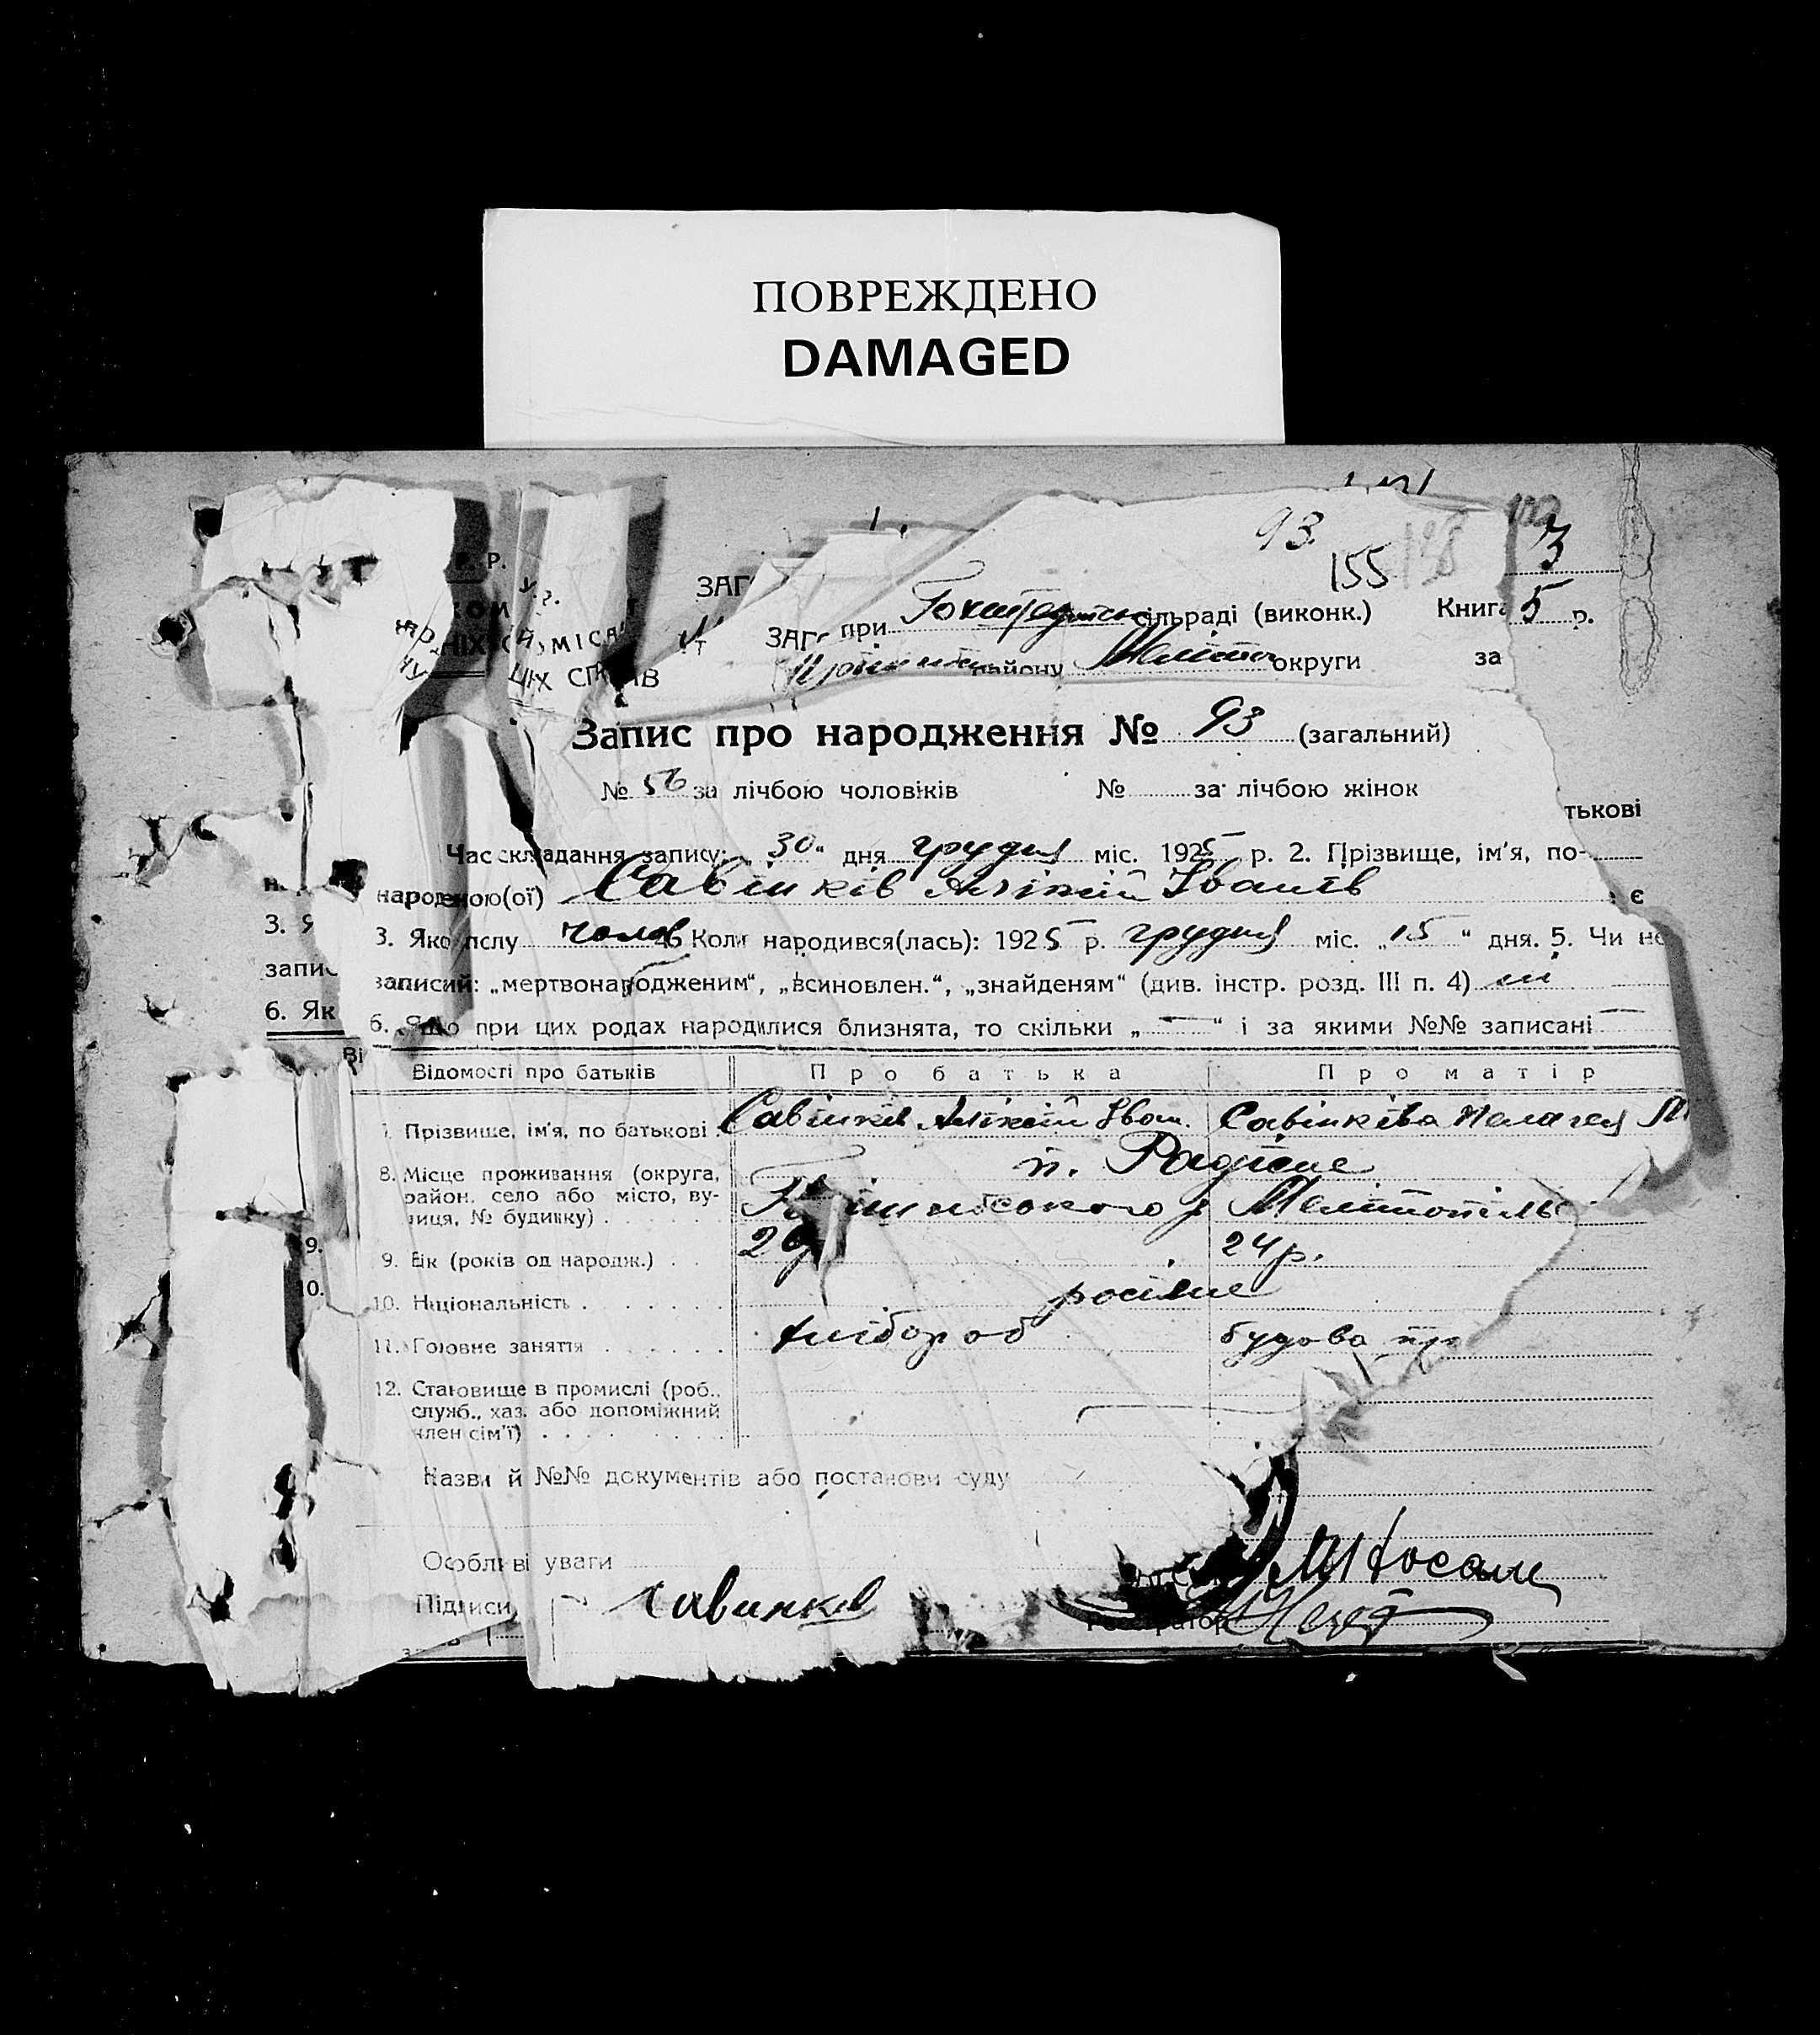 ПОВРЕЖДЕНО
DAMAGED
93.
155
3
Р. Р.
ЗАГ
ЗАГ при сільраді (виконк.) Книга 5 р.
району Меліто округи за
ЦІХ СПРАВ
Запис про народження № 93 (загальний)
№ 56 за лічбою чоловіків № за лічбою жінок
тькові
Час складання запису: „30“ дня грудня міс. 1925 р. 2. Прізвище, ім'я, по-
народеною(ої) Савінків Алікій Іванів
3. Я
3. Якої пслу чолов 4. Коли народився(лась): 1925 р. грудня міс. „15“ дня. 5. Чи не є
запис
записий: „мертвонародженим“, „всиновлен.“, „знайденям“ (див. інстр. розд. III п. 4) ні
6. Як
6. Якщо при цих родах народилися близнята, то скільки „—“ і за якими №№ записані —
Ві
Відомості про батьків Про батька Про матір
7. Прізвище, ім'я, по батькові Савінків Алікій Іван. Савінківа Пелагея М
8. Місце проживання (округа, район, село або місто, вулиця, № будинку) п. Радісне
Мелітопіль
9.
9. Вік (років од народж.) 29 24 р.
10.
10. Національність росіяне
11. Головне заняття хлібороб будова
12. Становище в промислі (роб., служб., хаз. або допоміжний член сім'ї)
Назви й №№ документів або постанови суду
Особливі уваги
Підписи Савинков
Реєстратор